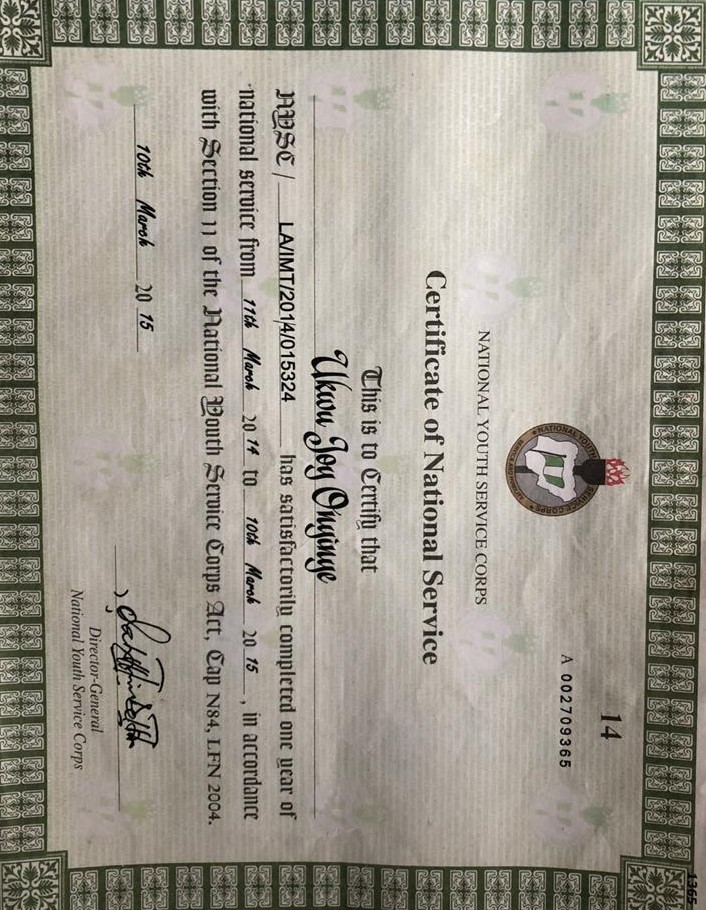 1365
14
A 002709365
NATIONAL YOUTH SERVICE CORPS
NATIONAL YOUTH SERVICE CORPS
Certificate of National Service
This is to Certify that
Ukwu Joy Onyinye
NYSC/ LA/IMT/2014/015324 has satisfactorily completed one year of
national service from 11th March 2014 to 10th March 2015, in accordance
with Section 11 of the National Youth Service Corps Act, Cap N84, LFN 2004.
10th March 2015
Director-General
National Youth Service Corps